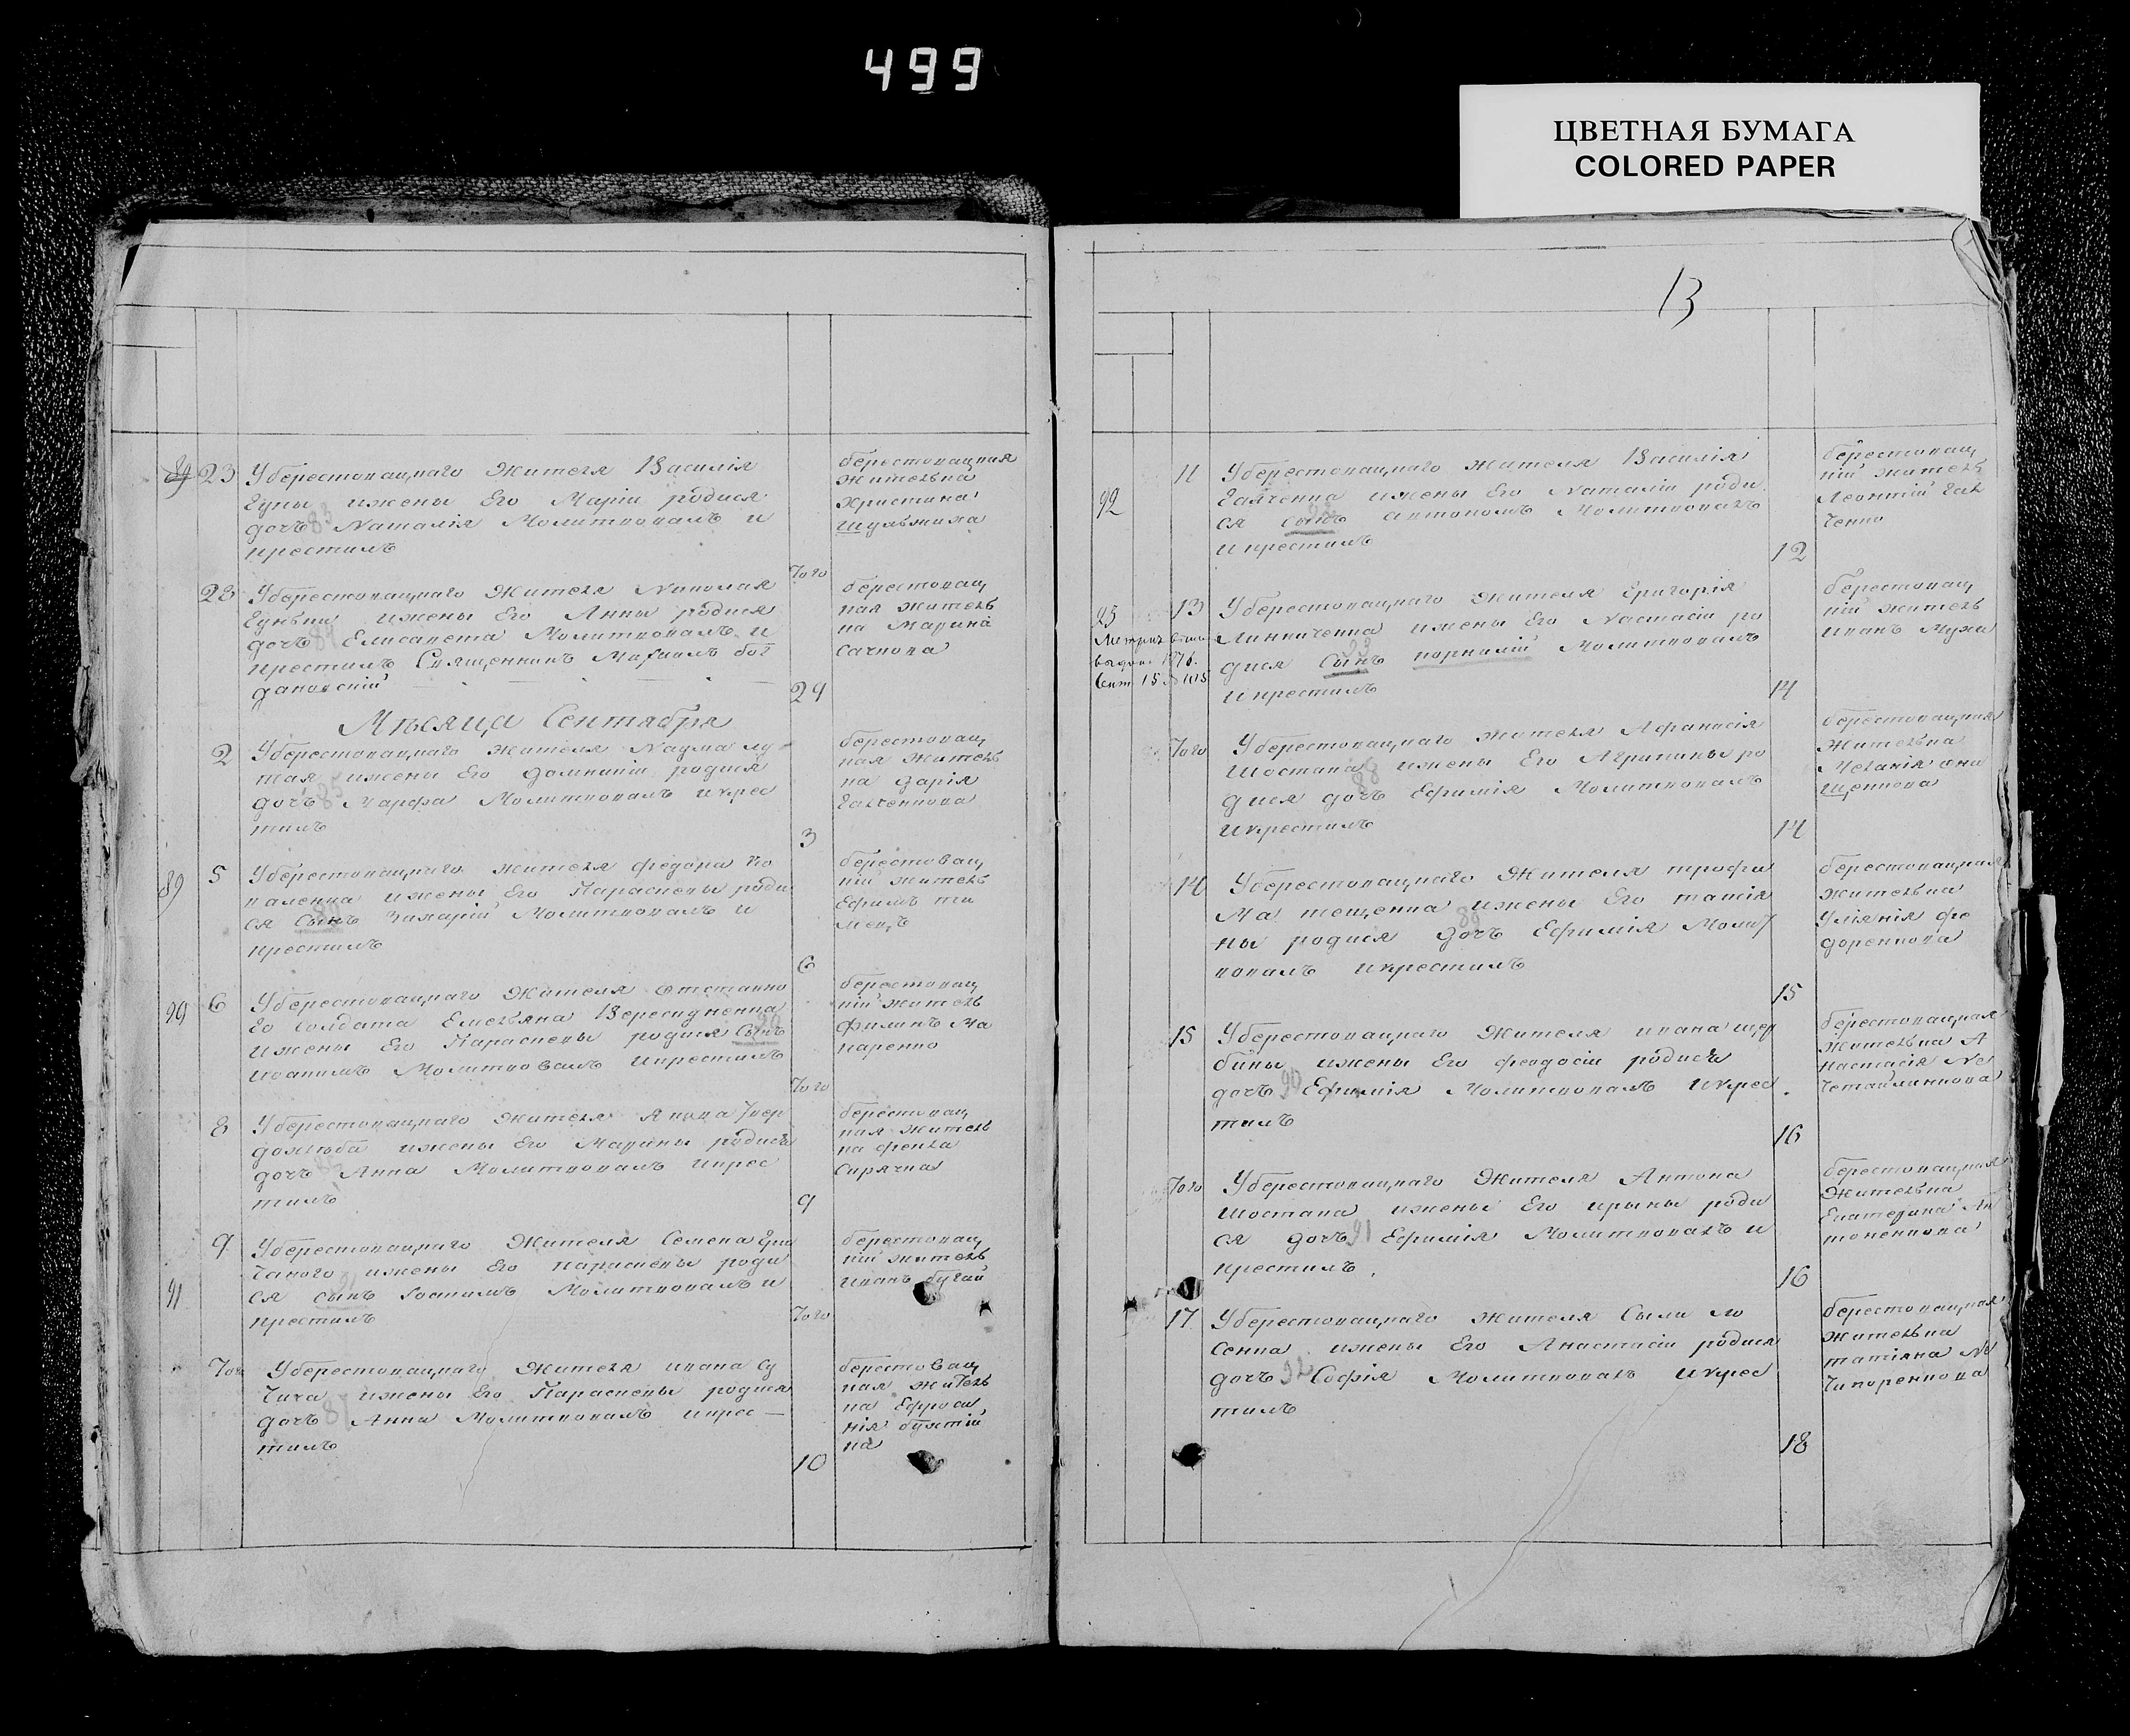 499
ЦВЕТНАЯ БУМАГА
COLORED PAPER
23 Уберестовацкаго жителя Василія
ижены Его Маріи родися
дочь 83 Наталія Молитвовалъ и
крестилъ
Того
берестовацкая
жителька
Христина
28 Уберестовацкаго жителя Николая
ижены Его Анны родися
дочь Елисавета Молитвовалъ и
крестилъ Священникъ Михаилъ бог
дановскій
29
берестовац
кая житель
ка Марина
Сачкова
Мѣсяца Сентября
2 Уберестовацкаго жителя Наума лу
тая ижены Его Домникіи родися
дочь 85 Марфа Молитвовалъ икрес
тилъ
3
берестовац
кая житель
ка Дарія
Галченкова
89 5 Уберестовацкаго жителя Федора ко
валенка ижены Его Параскевы роди
ся Сынъ Захарій Молитвовалъ и
крестилъ
6
берестовац
кій житель
Ефимъ
90 6 Уберестовацкаго жителя отставно
го Солдата Емельяна
ижены Его Параскевы родися Сынъ
Иоакимъ Молитвовалъ икрестилъ
Того
берестовац
кій житель
Филипъ Ма
каренко
8 Уберестовацкаго жителя Якова твер
дохлѣба ижены Его Марины родися
дочь Анна Молитвовалъ икрес
тилъ
9
берестовац
кая житель
ка Фекла
Сирячка
91 9 Уберестовацкаго жителя Семена
ижены Его параскевы роди
ся Сынъ Молитвовалъ и
крестилъ
Того
берестовац
кій житель
Иванъ бугай
Того Уберестовацкаго жителя ивана
ижены Его Параскевы родися
дочь 87 Анна Молитвовалъ икрес
тилъ
10
берестовац
кая житель
ка Ефроси
нія
ка
13
92 11 Уберестовацкаго жителя Василія
Галченка ижены Его Наталіи роди
ся Сынъ Антономъ Молитвовалъ
икрестилъ
12
берестовац
кій житель
Леонтій Гал
ченко
93 13 Уберестовацкаго жителя Григорія
Линниченка ижены Его Настасіи ро
дися Сынъ 93 корнилій Молитвовалъ
икрестилъ
14
1876.
15
берестовац
кій житель
иванъ
Того Уберестовацкаго жителя Афанасія
Шостака ижены Его Агрипины ро
дися дочь 88 Ефимія Молитвовалъ
икрестилъ
14
берестовацкая
жителька
Меланія они
щенкова
14 Уберестовацкаго жителя трофи
ма тещенка ижены Его татія
ны родися дочь 89 Ефимія Молит
вовалъ икрестилъ
15
берестовацкая
жителька
Уліянія фе
доренкова
15 Уберестовацкаго жителя ивана щер
бины ижены Его феодосіи родися
дочь 90 Ефимія Молитвовалъ икрес
тилъ
16
берестовацкая
жителька А
настасія Не
четайленкова
Того Уберестовацкаго жителя Антона
Шостака ижены Его ирины роди
ся дочь 91 Ефимія Молитвовалъ и
крестилъ
16
берестовацкая
жителька
Екатерина Ан
тоненкова
17 Уберестовацкаго жителя Сылы ло
сенка ижены Его Анастасіи родися
дочь 92 Софія Молитвовалъ икрес
тилъ
18
берестовацкая
жителька
татіяна Не
чипоренкова